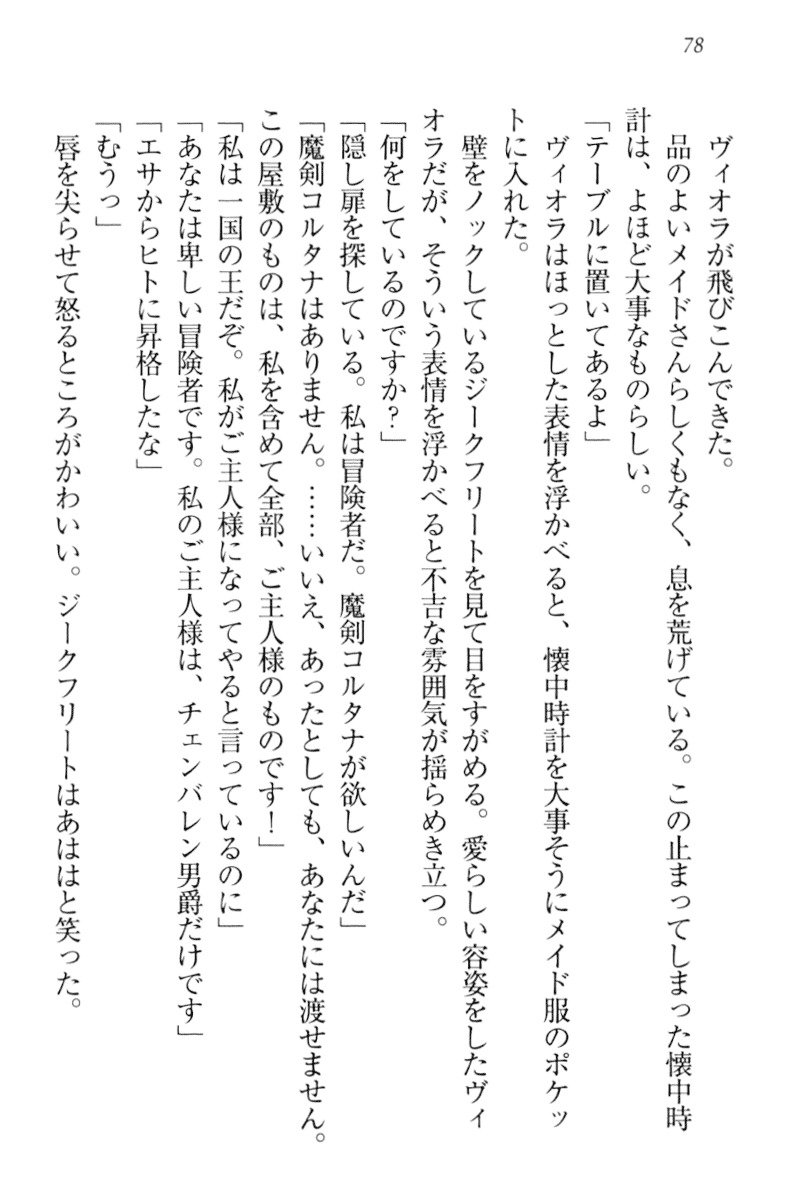 78
ヴィオラが飛びこんできた。
品のよいメイドさんらしくもなく、息を荒げている。この止まってしまった懐中時
計は、よほど大事なものらしい。
「テーブルに置いてあるよ」
ヴィオラはほっとした表情を浮かべると、懐中時計を大事そうにメイド服のポケッ
トに入れた。
壁をノックしているジークフリートを見て目をすがめる。愛らしい容姿をしたヴィ
オラだが、そういう表情を浮かべると不吉な雰囲気が揺らめき立つ。
「何をしているのですか？」
「隠し扉を探している。私は冒険者だ。魔剣コルタナが欲しいんだ」
「魔剣コルタナはありません。……いいえ、あったとしても、あなたには渡せません。
この屋敷のものは、私を含めて全部、ご主人様のものです！」
「私は一国の王だぞ。私がご主人様になってやると言っているのに」
「あなたは卑しい冒険者です。私のご主人様は、チェンバレン男爵だけです」
「エサからヒトに昇格したな」
「むうっ」
唇を尖らせて怒るところがかわいい。ジークフリートはあははと笑った。